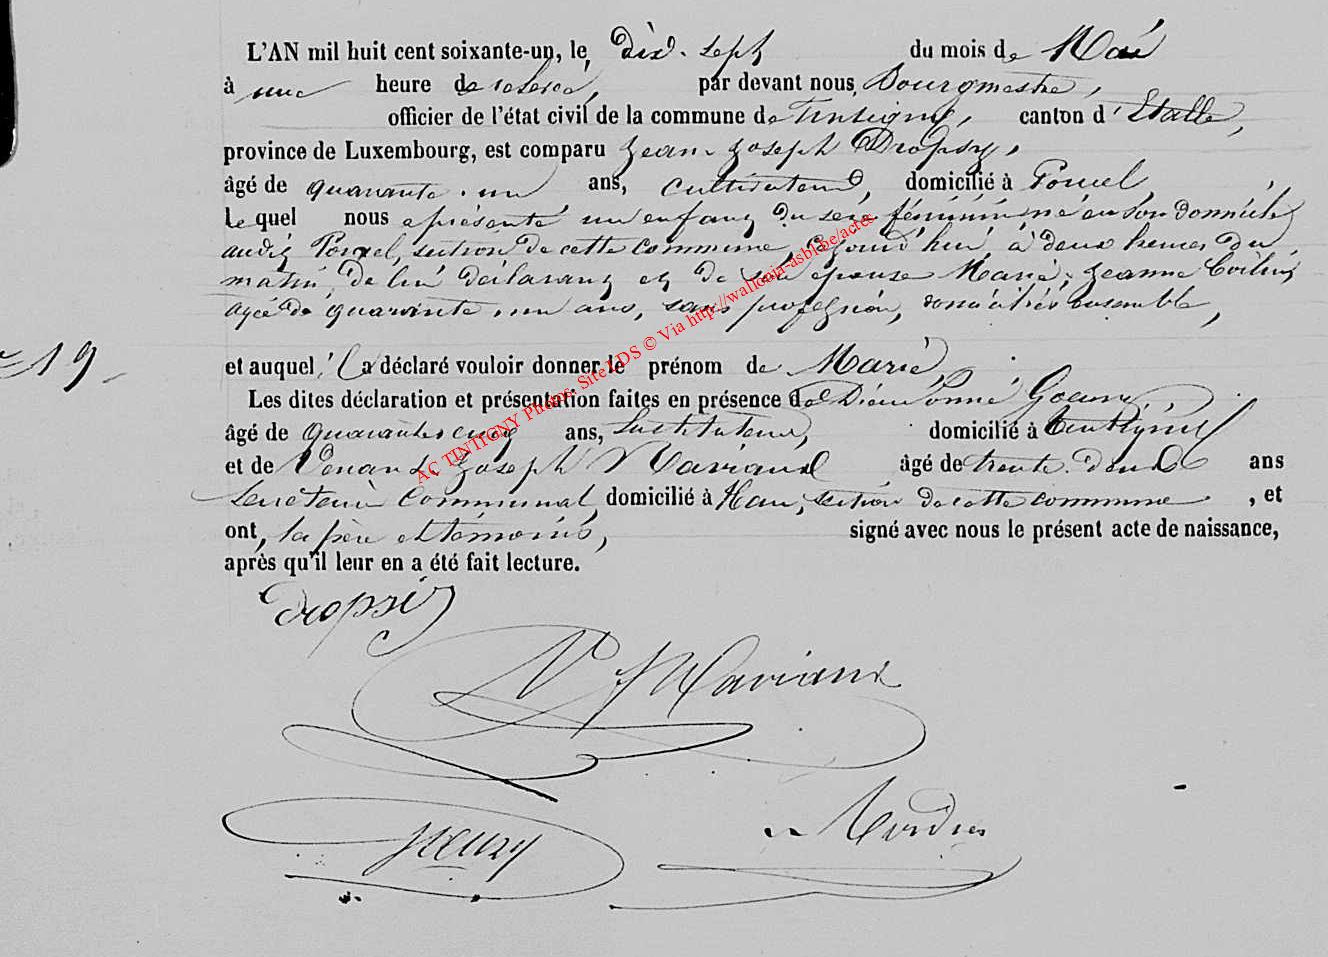 L'AN mil huit cent soixante-un, le dix-sept du mois de Mai
à une heure de relevée, par devant nous, Bourgmestre,
officier de l'état civil de la commune de Tintigny, canton d'Etalle,
province de Luxembourg, est comparu Jean Joseph Dropsy,
âgé de quarante-un ans, cultivateur, domicilié à Poncel,
lequel nous a présenté un enfant du sexe féminin né en son domicile
audit Poncel, section de cette commune, aujourd'hui à deux heures du
matin, de lui déclarant et de son épouse Marie Jeanne
agée de quarante-un ans, sans profession, domiciliés ensemble,
19
et auquel il a déclaré vouloir donner le prénom de Marie,
Les dites déclaration et présentation faites en présence de Dieudonné
âgé de quarante-cinq ans, Instituteur, domicilié à Tintigny
et de Venant Joseph Maviaux âgé de trente-deux ans
Secrétaire Communal, domicilié à Han, section de cette commune, et
ont, le père et témoins, signé avec nous le présent acte de naissance,
après qu'il leur en a été fait lecture.
Dropsi
V J Maviaux
AC TINTIGNY Photos. Site LDS © Via http://wallonia-asbl.be/actes